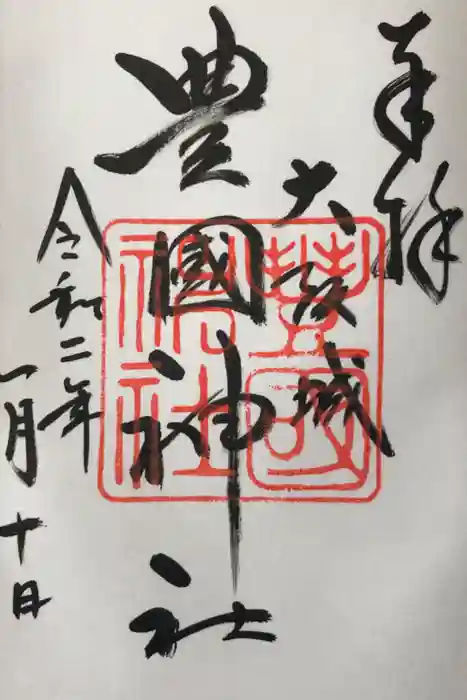 奉拝
大阪城
豊國神社
令和二年
一月十日
豊國
神社